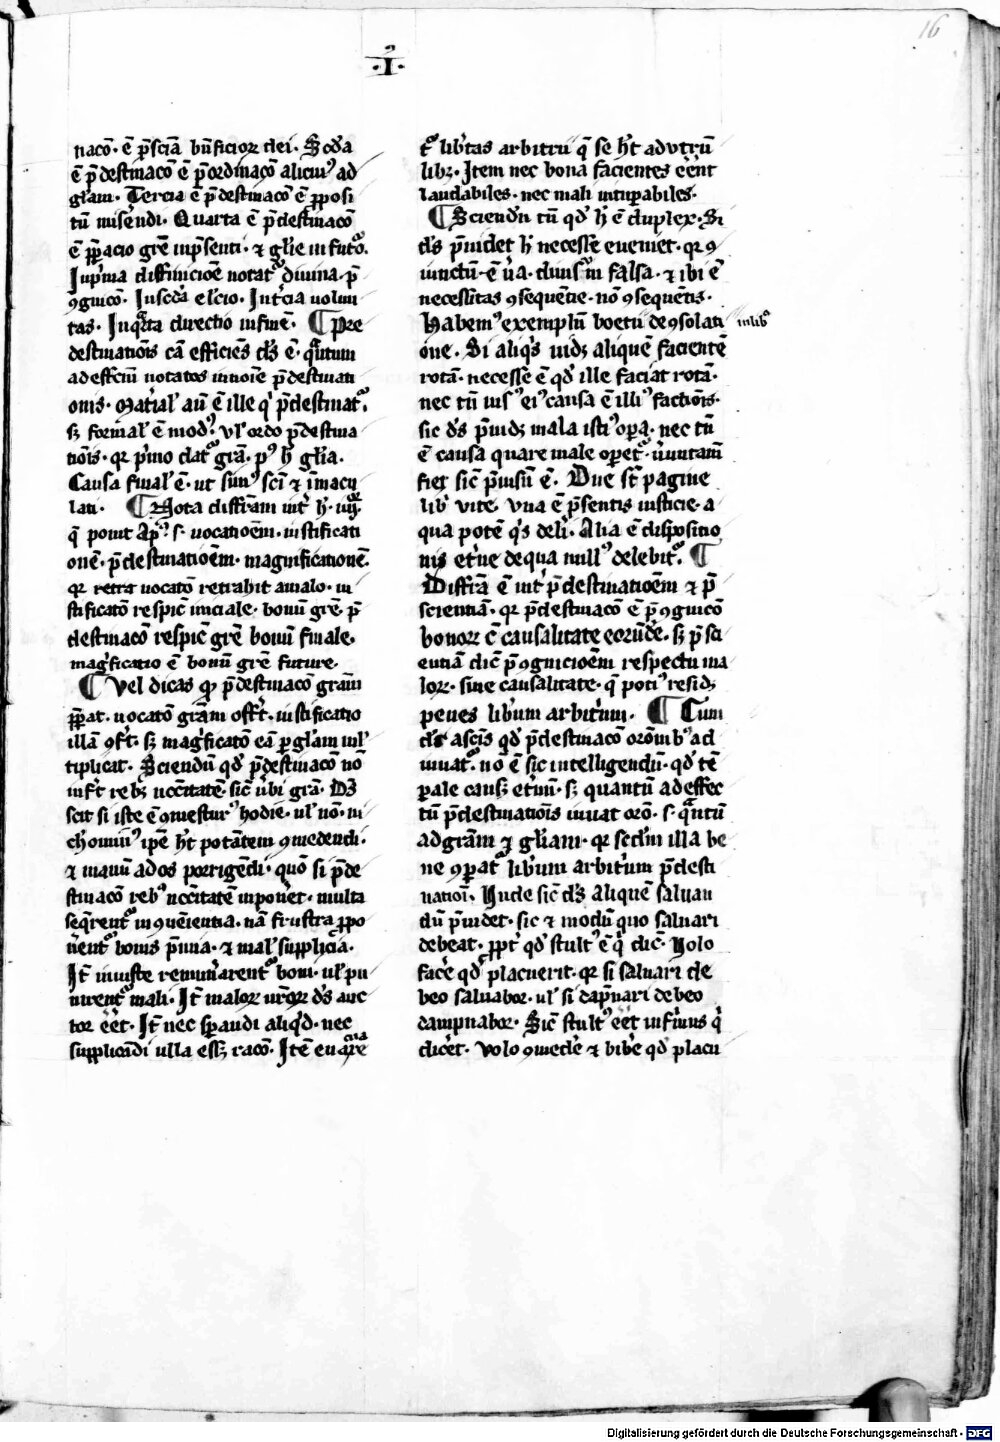 16
·I·
nacō· ē p̄sciā bn̄ficioꝝ dei· Scďa
ē p̄destinacō ē p̄ordinacō alicuiꝰ ad
gl̄am· Tercia ē p̄destinacō ē ꝓposi
tū mis̓endi· Quarta ē p̄destinacō
ē p̄ꝑacio grē inp̄senti· ⁊ gl̄ie in futo·
Inp̓ma diffinicioē notatᷣ diuina· p̄
ꝯgnicō· Insc̄da el̄cio· Int̓cia uolun
tas· Inqͣrta directio in finē· ¶ Pre
destinatiōis cā efficiēs ds̄ ē· qͣntum
ad effectū notatos in noīe p̄destinati
onis· Mat̓ial̓ aūt ē ille q̓ p̄destinatᷣ·
sꝫ formal̓ ē modꝰ ul̓ ordo p̄destina
tiōis· qꝛ p̓mo datᷣ grā· pꝰ h̓ gl̓ia·
Causa final̓ ē· ut simꝰ sc̄i ⁊ īmacu
lati· ¶ Nota diffr̄am int̓ h̓· iiijͦꝛ
q̄ ponit Ap̄ꝰ· s· uocatioēm· iustificati
onē· p̄destinatioēm· magnificationē·
qꝛ retra uocatō retrahit amalo· iu
stificatō respic̄ iniciale· bonū grē· p̄
destinacō respic̄ grē bonū finale·
mag̓ficatio ē bonū grē future·
¶ Vel dicas ꝙ p̄destinacō grām
p̄ꝑat· uocatō grām off̓t· iustificatio
illā ꝯf̓t· sꝫ mag̓ficatō eā ꝑ gl̄am ml̓
tiplicat· Sciendū qď p̄destinacō nō
inf̓t rebꝫ nc̄citatē· sic̄ ub̓i grā· Ds̄
scit si iste ē ꝯmesturꝰ hodie· ul̓ nō· ni
chominꝰ ip̄e h̓t potātem ꝯmedendi·
⁊ manū ad os porrigēdi· quō si p̄de
stinacō rebꝰ nc̄citatē inpon̓et· multa
seq̓rentᷣ inꝯueīentia· nā frustra ꝓpo
n̓entᷣ bonis p̄mia· ⁊ mal̓ supplicia·
It̄ iniuste remun̓arentᷣ boni· ul̓ pu
nirentᷣ mali· It̄ maloꝝ nr̄oꝝ ds̄ auc
tor eēt· It̄ nec sꝑandi aliq̓d· nec
supplicādi ulla esset racō· Itē euaꝛ̄e
tᷣ lib̓tas arbitrii q̄ se h̓t ad vtrū
libꝫ· Item nec bona facientes eēnt
laudabiles· nec mali uituꝑabiles·
¶ Sciendū tn̄ qď h̓ ē duplex· Si
ds̄ p̄uidet h̓ necesse eueniet· qꝛ ꝯ
iunctū· ē ūa· diuisim̄ falsa· ⁊ ibi ē
necessitas ꝯsequentie· nō ꝯsequētis·
Habemꝰ exemplū boetii de ꝯsolati
inlibͦ
one· Si aliq̓s uidꝫ aliquē facientē
rotā· necesse ē qď ille faciat rotā·
nec tn̄ uisꝰ eiꝰ causa ē illiꝰ factiōis·
sic ds̄ p̄uidꝫ mala istiꝰ oꝑa· nec tn̄
ē causa quare male oꝑetᷣ· ūmtamē
fiet sic̄ p̄uisū ē· Due sr̄ pagine
lib̓ vite· vna ē p̄sentis iusticie· a
qua potē q̓s del̓i· Alia ē dispositio
nis et̓ne de qua nullꝰ delebitᷣ· ¶
Diffr̄a ē int̓ p̄destinatioēm ⁊ p̄
scientiā· qꝛ p̄destinacō ē p̄ꝯgnicō
bonoꝝ cū causalitate eorūdē· sꝫ p̄sci
entiā dic̄ p̄ꝯgnicioēm respectu ma
loꝝ· sine causalitate· q̄ potiꝰ residꝫ
penes lib̓um arbit̓um· ¶ Cum
ds̄ ascis̄ qď p̄destinacō orōnibꝰ ad
iuuatᷣ· nō ē sic intelligendū· qď tē
ꝑale causꝫ et̓nū· sꝫ quantū ad effec
tū p̄destinatiōis iuuat orō· s· qͣntū
ad grām ⁊ gl̓iam· qꝛ sed̓m illa be
ne ꝯꝑatᷣ lib̓um arbit̓um p̄desti
nationi· Unde sic̄ ds̄ aliquē saluan
dū p̄uidet· sic ⁊ modū quo saluari
debeat· ꝓpt̓ qď stultꝰ ē q̓ dic̄· Nolo
fac̓e qď placuerit· qꝛ si saluari de
beo saluabor· ul̓ si dāpnari debeo
dampnabor· Sic̄ stultꝰ eēt infirmus q̓
dic̓et· Volo ꝯmed̓e ⁊ bib̓e qď placu
Digitalisierung gefördert durch die Deutsche Forschungsgemeinschaft - DFG